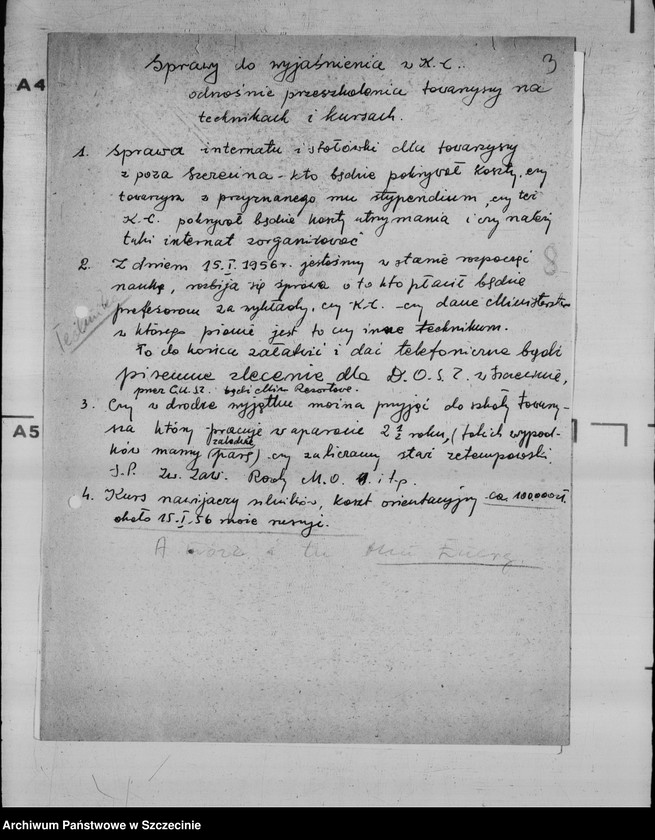 3
A4
Sprawy do wyjaśnienia w K.C.
odnośnie przeszkolenia towarzyszy na
technikach i kursach.
1. Sprawa internatu i stołówki dla towarzyszy
z poza Szczecina - kto będzie pokrywał koszty, czy
towarzysz z przyznanego mu stypendium, czy też
K.C. pokrywał będzie koszty utrzymania i czy należy
taki internat zorganizować
2. Z dniem 15.I.1956r. jesteśmy w stanie rozpocząć
naukę, rozbija się sprawa o to kto płacił będzie
profesorom za wykłady, czy K.C. - czy dane Ministerstwo
w którego pionie jest to czy inne technikum.
To do końca załatwić i dać telefoniczne bądź
pisemne zlecenie dla D.O.S.Z. w Szczecinie,
przez C.U.SZ. bądź Min. Resortowe.
8
A5
3. Czy w drodze wyjątku można przyjąć do szkoły towarzy-
sza który pracuje w aparacie 2 1/2 roku, (takich wypad-
ków mamy zaledwie parę) czy zaliczamy staż zetempowski
S.P. Zw. Zaw. Rady M.O. i t.p.
4. Kurs nawijaczy silników, koszt orientacyjny ca 100.000 zł.
około 15.I.56 może ruszyć.
A
Archiwum Państwowe w Szczecinie